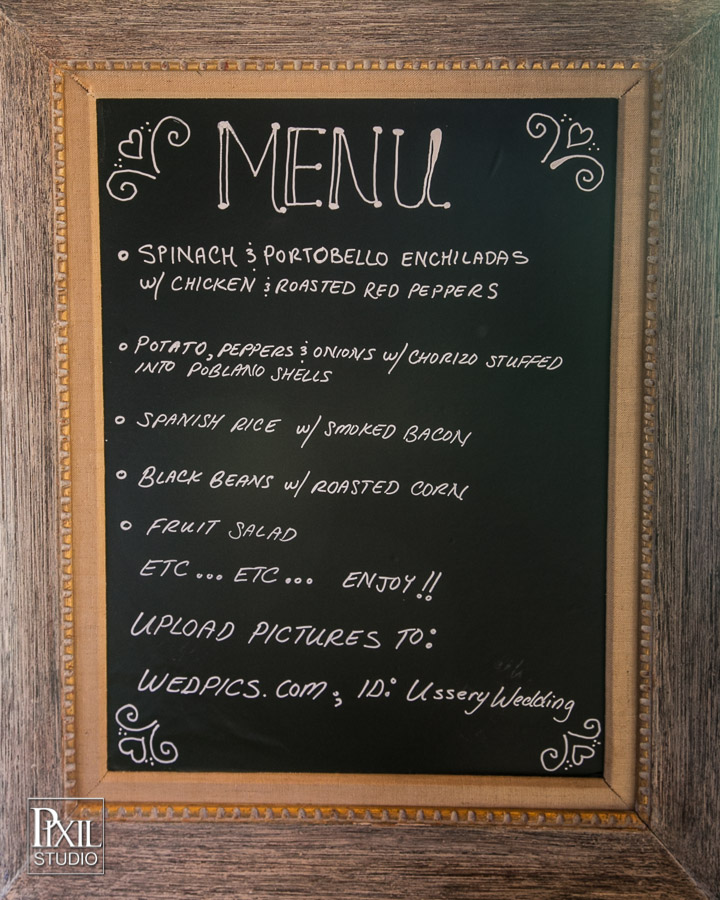 MENU
• SPINACH & PORTOBELLO ENCHILADAS
w/ CHICKEN & ROASTED RED PEPPERS
• POTATO, PEPPERS & ONIONS w/ CHORIZO STUFFED
INTO POBLANO SHELLS
• SPANISH RICE w/ SMOKED BACON
• BLACK BEANS w/ ROASTED CORN
• FRUIT SALAD
ETC... ETC... ENJOY!!
UPLOAD PICTURES TO:
WEDPICS.COM; ID: UsseryWedding
PIXIL
STUDIO